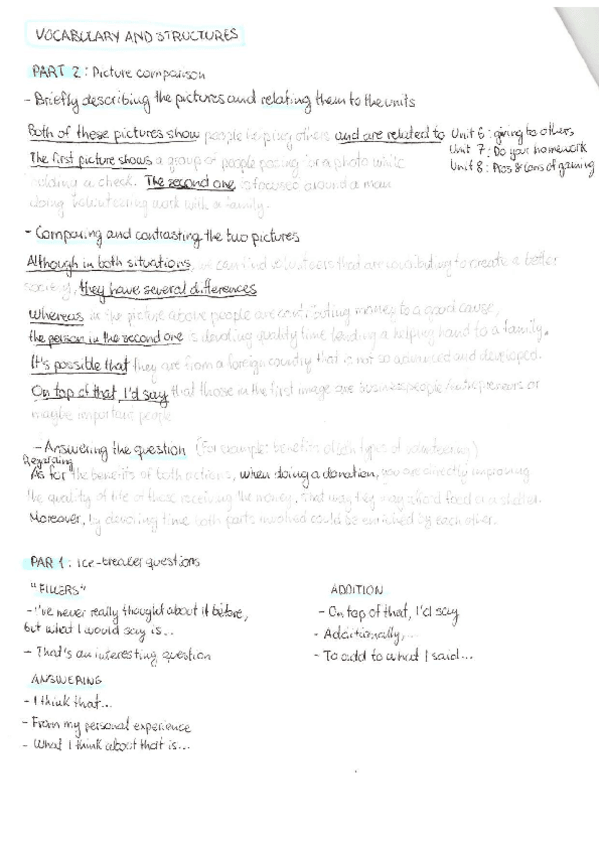 VOCABULARY AND STRUCTURES
PART 2: Picture comparison
- Briefly describing the pictures and relating them to the units
Both of these pictures show people helping others and are related to Unit 6: giving to others
Unit 7: Do your homework
The first picture shows a group of people posing for a photo while Unit 8: Pros & cons of gaming
holding a check. The second one is focused around a man
doing volunteering work with a family.
- Comparing and contrasting the two pictures
Although in both situations, we can find volunteers that are contributing to create a better
society, they have several differences
Whereas in the picture above people are contributing money to a good cause,
the person in the second one is devoting quality time lending a helping hand to a family.
It's possible that they are from a foreign country that is not so advanced and developed.
On top of that, I'd say that those in the first image are businesspeople/entrepreneurs or
maybe important people
- Answering the question (For example: benefits of both types of volunteering)
Regarding
As for the benefits of both actions, when doing a donation, you are directly improving
the quality of life of those receiving the money, that way they may afford food or a shelter.
Moreover, by devoting time both parts involved could be enriched by each other.
PAR 1: Ice-breaker questions
"FILLERS"
- I've never really thought about it before,
but what I would say is...
- That's an interesting question
ANSWERING
- I think that...
- From my personal experience
- What I think about that is...
ADDITION
- On top of that, I'd say
- Additionally,...
- To add to what I said...